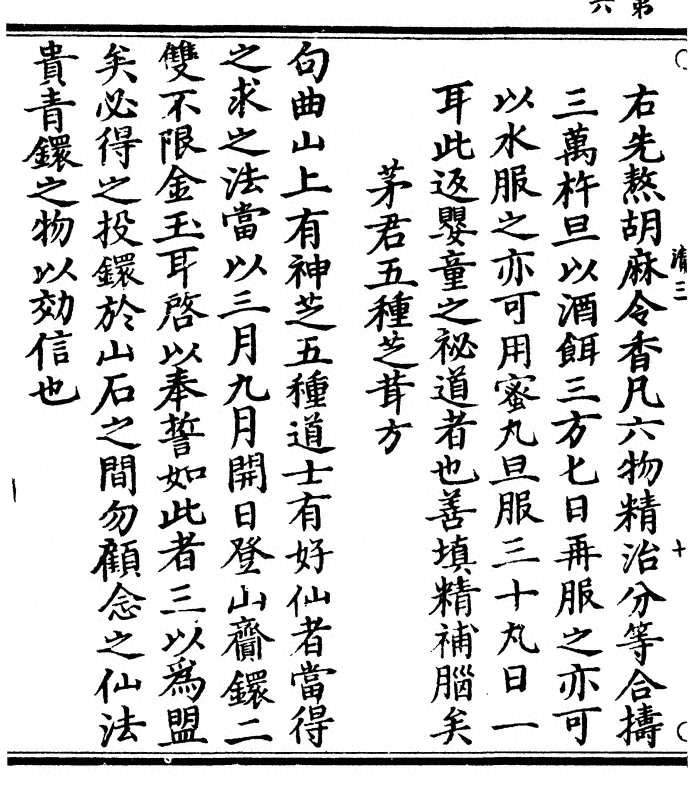 右先熬胡麻令香凡六物精治分等合擣
三萬杵旦以酒餌三方七日再服之亦可
以水服之亦可用蜜丸旦服三十丸日一
耳此返嬰童之祕道者也善填精補腦矣
茅君五種芝茸方
句曲山上有神芝五種道士有好仙者當得
之求之法當以三月九月開日登山齎鐶二
雙不限金玉耳啓以奉誓如此者三以爲盟
矣必得之投鐶於山石之間勿顧念之仙法
貴青鐶之物以効信也